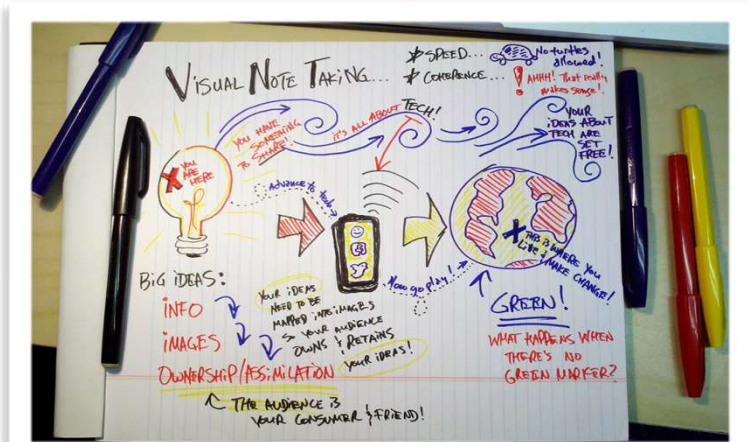 VISUAL NOTE TAKING...
* SPEED...
No turtles
allowed!
* COHERENCE...
! AHHH! That really
makes sense!
YOU HAVE
SOMETHING
TO SHARE!
it's ALL ABOUT TECH!
YOUR
iDEAS ABOUT
TECH ARE
SET
FREE!
X YOU
ARE
HERE
Advance to tech
X THIS IS WHERE YOU
Live & MAKE CHANGE!
Now go play!
BiG iDEAS:
iNFO
iMAGES
OWNERSHiP/ASSiMiLATiON
YOUR iDEAS
NEED TO BE
MAPPED INTO iMAGES
SO YOUR AUDiENCE
OWNS & RETAiNS
YOUR iDEAS!
THE AUDiENCE iS
YOUR CONSUMER & FRiEND!
GREEN!
WHAT HAPPENS WHEN
THERE'S NO
GREEN MARKER?